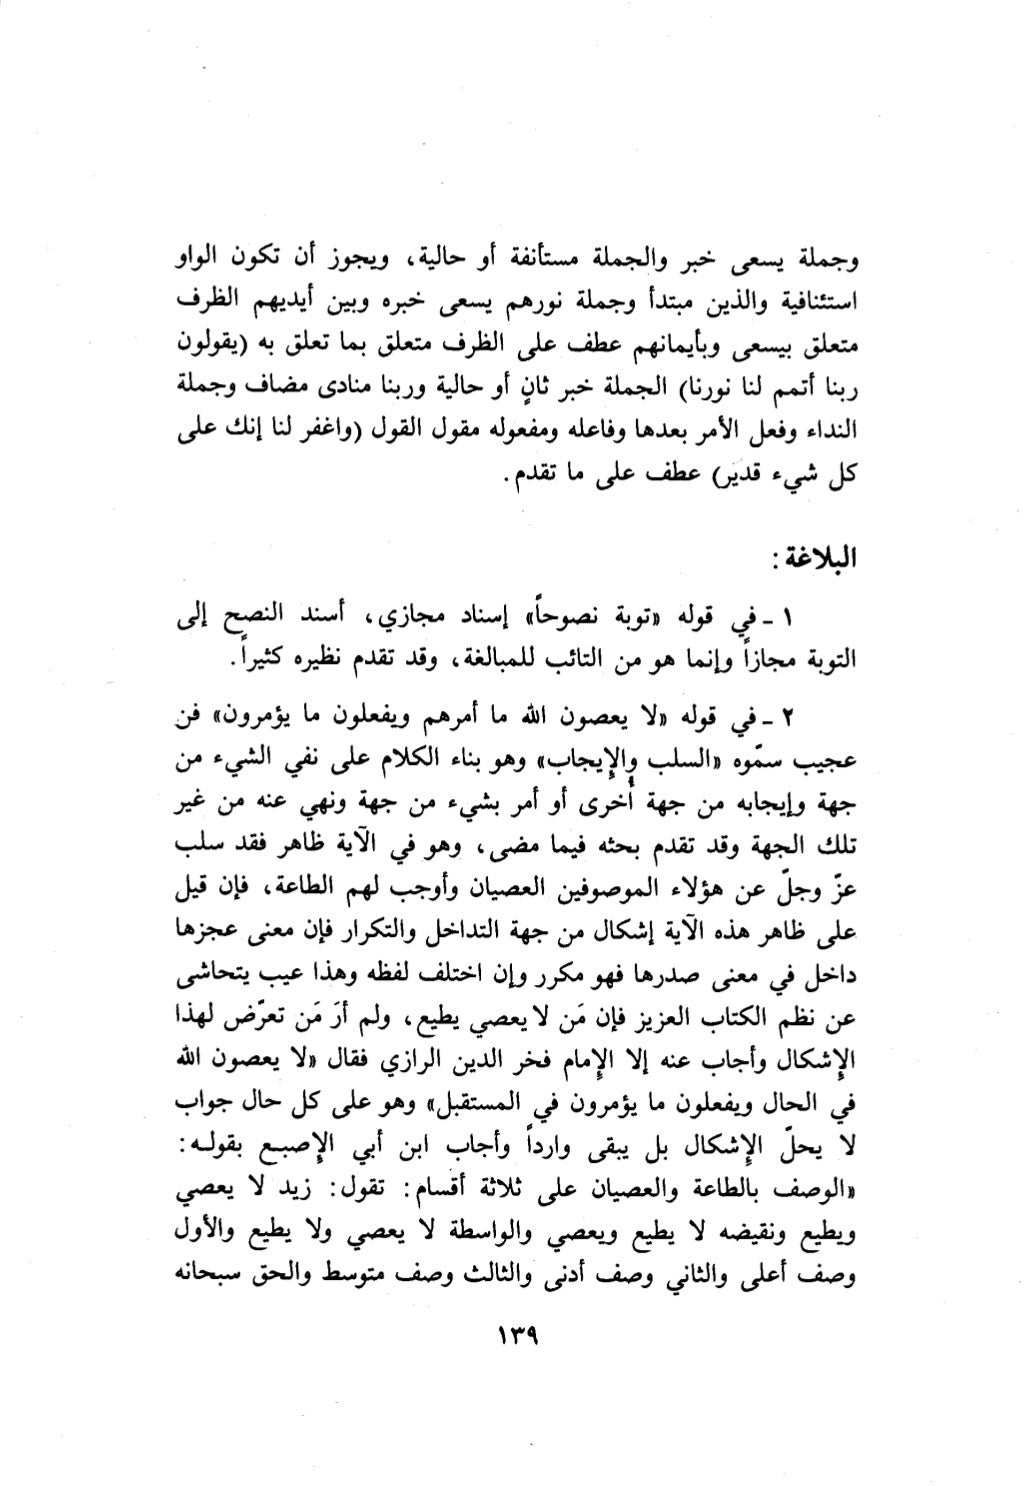 وجملة يسعى خبر والجملة مستأنفة أو حالية، ويجوز أن تكون الواو
استئنافية والذين مبتدأ وجملة نورهم يسعى خبره وبين أيديهم الظرف
متعلق بيسعى وبأيمانهم عطف على الظرف متعلق بما تعلق به (يقولون
ربنا أتمم لنا نورنا) الجملة خبر ثانٍ أو حالية وربنا منادى مضاف وجملة
النداء وفعل الأمر بعدها وفاعله ومفعوله مقول القول (واغفر لنا إنك على
كل شيء قدير) عطف على ما تقدم.
البلاغة:
١ ـ في قوله «توبة نصوحاً» إسناد مجازي، أسند النصح إلى
التوبة مجازاً وإنما هو من التائب للمبالغة، وقد تقدم نظيره كثيراً.
٢ ـ في قوله «لا يعصون الله ما أمرهم ويفعلون ما يؤمرون» فن
عجيب سمّوه «السلب والإيجاب» وهو بناء الكلام على نفي الشيء من
جهة وإيجابه من جهة أُخرى أو أمر بشيء من جهة ونهي عنه من غير
تلك الجهة وقد تقدم بحثه فيما مضى، وهو في الآية ظاهر فقد سلب
عزّ وجلّ عن هؤلاء الموصوفين العصيان وأوجب لهم الطاعة، فإن قيل
على ظاهر هذه الآية إشكال من جهة التداخل والتكرار فإن معنى عجزها
داخل في معنى صدرها فهو مكرر وإن اختلف لفظه وهذا عيب يتحاشى
عن نظم الكتاب العزيز فإن مَن لا يعصي يطيع، ولم أرَ مَن تعرّض لهذا
الإشكال وأجاب عنه إلا الإمام فخر الدين الرازي فقال «لا يعصون الله
في الحال ويفعلون ما يؤمرون في المستقبل» وهو على كل حال جواب
لا يحلّ الإشكال بل يبقى وارداً وأجاب ابن أبي الإصبع بقوله:
«الوصف بالطاعة والعصيان على ثلاثة أقسام: تقول: زيد لا يعصي
ويطيع ونقيضه لا يطيع ويعصي والواسطة لا يعصي ولا يطيع والأول
وصف أعلى والثاني وصف أدنى والثالث وصف متوسط والحق سبحانه
١٣٩